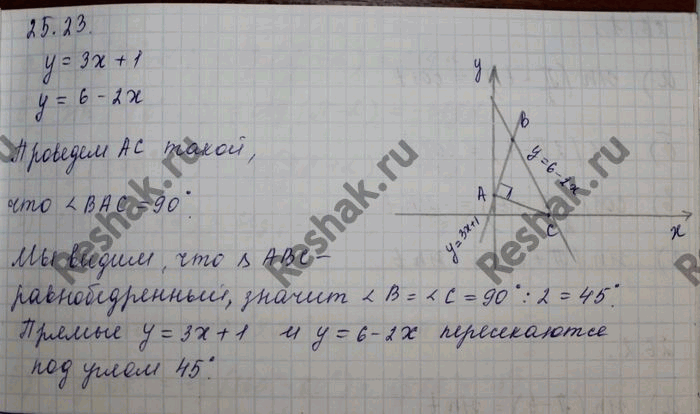 25.23.
y = 3x + 1
y = 6 - 2x
Проведем AC такой,
что ∠BAC = 90°.
Мы видим, что △ABC -
равнобедренный, значит ∠B = ∠C = 90° : 2 = 45°.
Прямые y = 3x + 1 и y = 6 - 2x пересекаются
под углом 45°.
y
B
y = 6 - 2x
A
y = 3x + 1
C
x
Reshak.ru
Reshak.ru
Reshak.ru
Reshak.ru
Reshak.ru
Reshak.ru